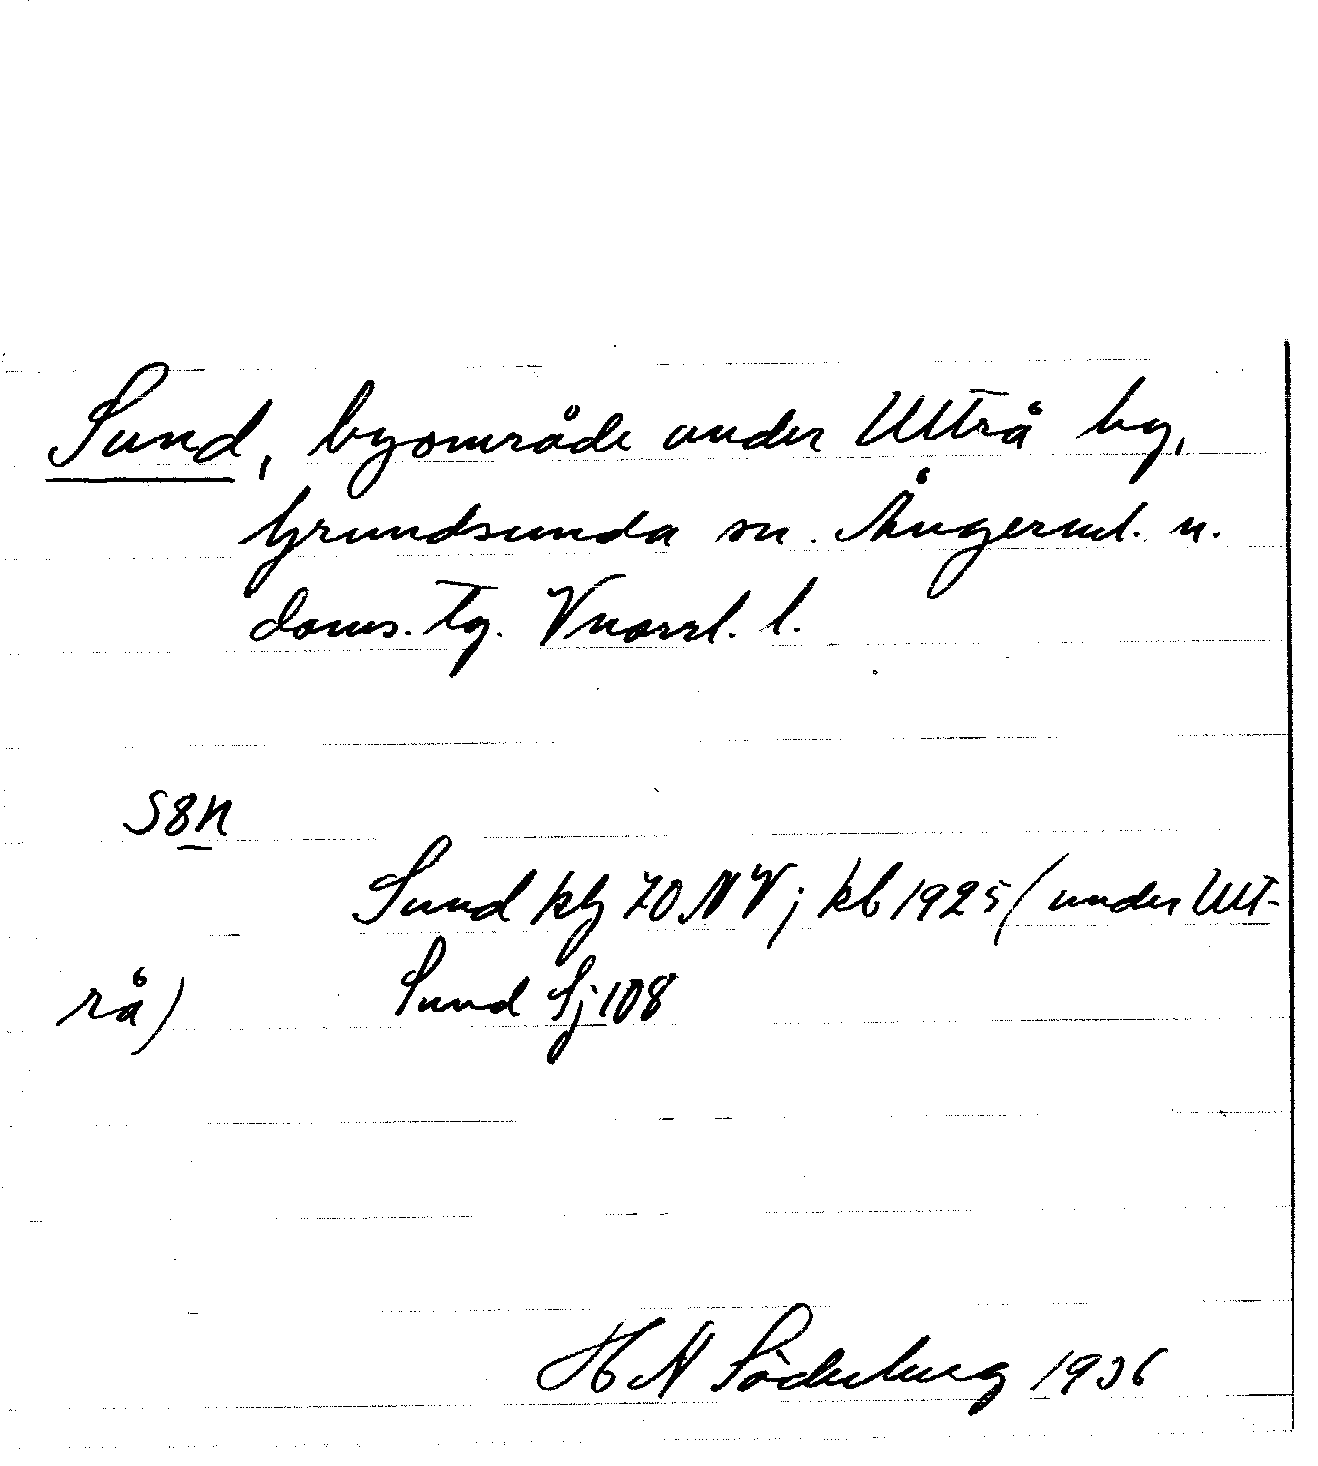 Sund, byområde under Utterå by,
Grundsunda sn. Ångerml. n.
doms. tg. Vnorrl. l.
Sund kbj 70 NV; kb 1925 (under Utt-
rå) Sund Sj 108
H N Söderberg 1936